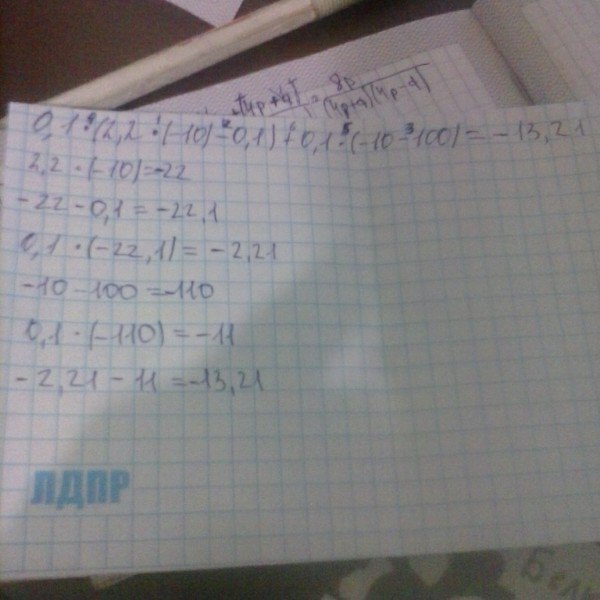 8p
(4p+q)(4p-q)
0,1·(2,2·(-10)-0,1)+0,1·(-10-100)=-13,21
2,2·(-10)=-22
-22-0,1=-22,1
0,1·(-22,1)=-2,21
-10-100=-110
0,1·(-110)=-11
-2,21-11=-13,21
ЛДПР